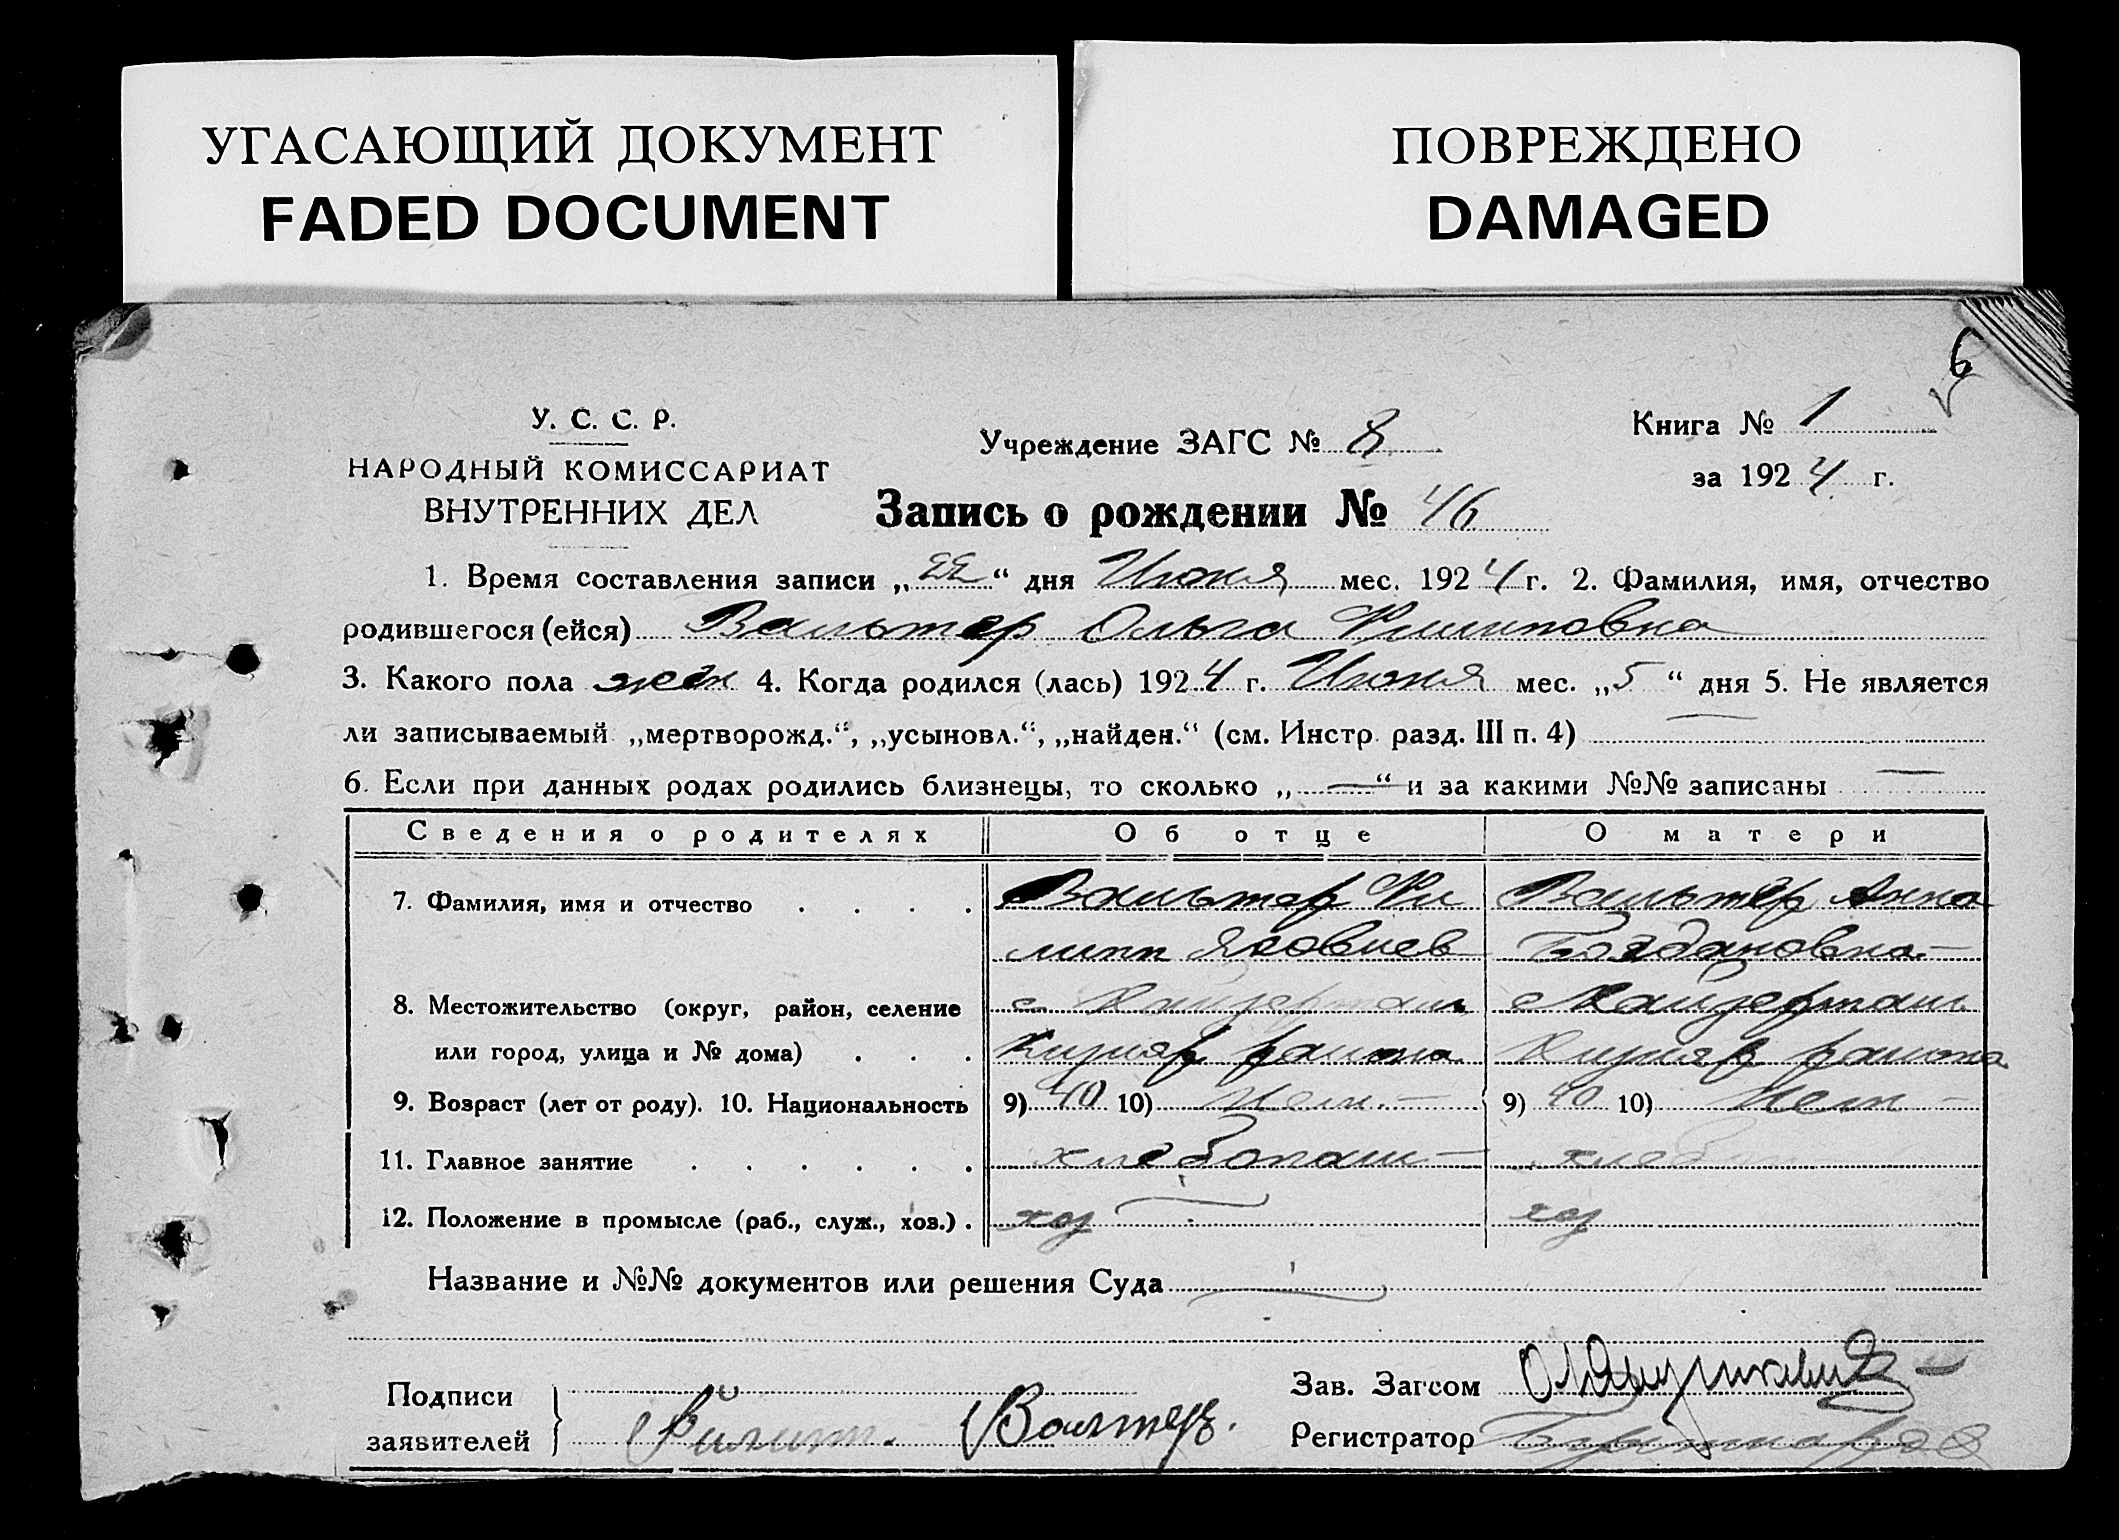 УГАСАЮЩИЙ ДОКУМЕНТ
FADED DOCUMENT
ПОВРЕЖДЕНО
DAMAGED
6
У. С. С. Р.
НАРОДНЫЙ КОМИССАРИАТ
ВНУТРЕННИХ ДЕЛ
Учреждение ЗАГС № 8
Книга № 1
за 1924 г.
Запись о рождении № 46
1. Время составления записи „22“ дня Июня мес. 1924 г. 2. Фамилия, имя, отчество
родившегося (ейся) Вальтер Ольга Филиповна
3. Какого пола жен 4. Когда родился (лась) 1924 г. Июня мес. „5“ дня 5. Не является
ли записываемый „мертворожд.“, „усыновл.“, „найден.“ (см. Инстр. разд. III п. 4) —
6. Если при данных родах родились близнецы, то сколько „—“ и за какими №№ записаны —
Сведения о родителях Об отце О матери
7. Фамилия, имя и отчество . . . . Вальтер Фи Вальтер Анна
липп Яковлев Богдановна
8. Местожительство (округ, район, селение с Кайзерталь с Кайзерталь
или город, улица и № дома) . . . района района
9. Возраст (лет от роду). 10. Национальность 9) 40 10) Нем. 9) 40 10) Нем
11. Главное занятие . . . . . . хлебопаш
12. Положение в промысле (раб., служ., хоз.) . хоз хоз
Название и №№ документов или решения Суда
Подписи
заявителей
Валтер.
Зав. Загсом
Регистратор